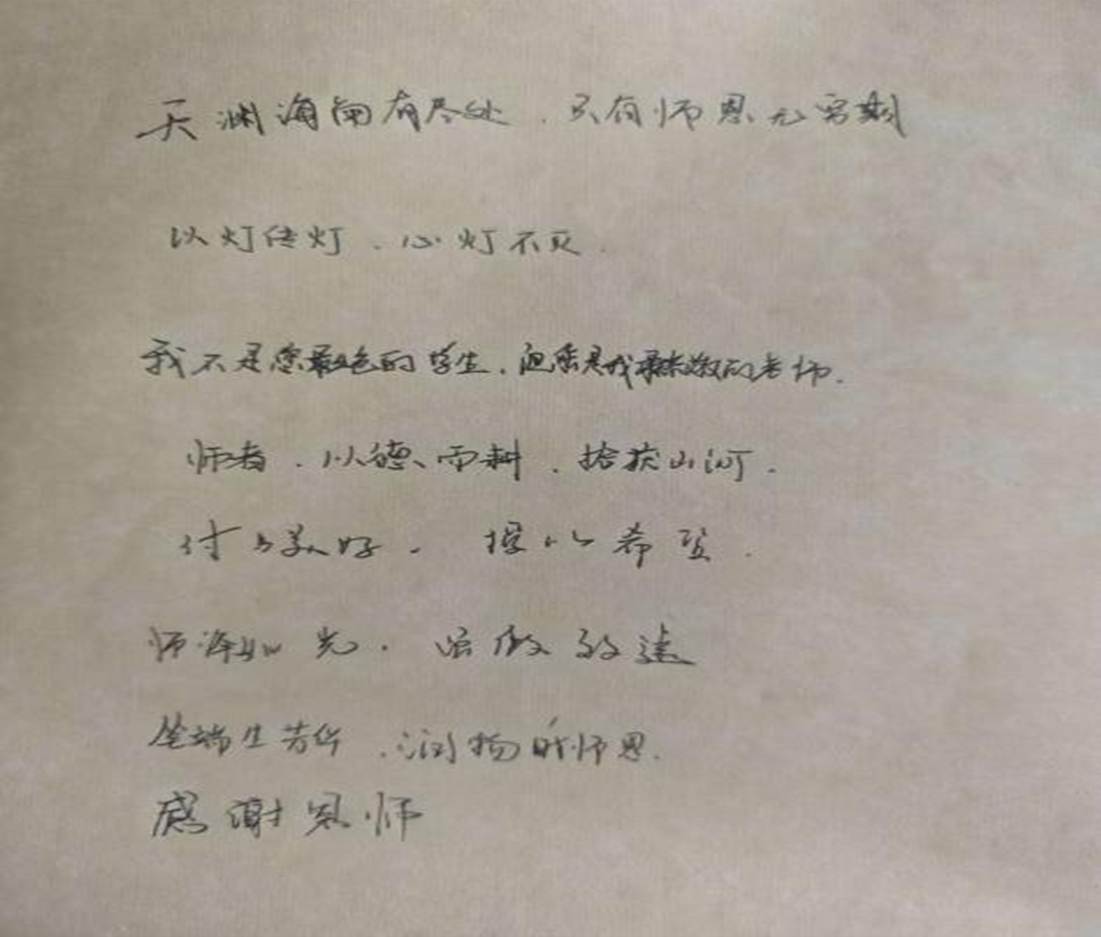 天渊海角有尽处，只有师恩无穷期
以灯传灯，心灯不灭.
我不是您最出色的学生，但您是我最敬的老师.
师者，以德而耕，拾获山河.
付与美好，授以希望.
师泽如光，虽微致远
笔端生芳华，润物的师恩.
感谢恩师